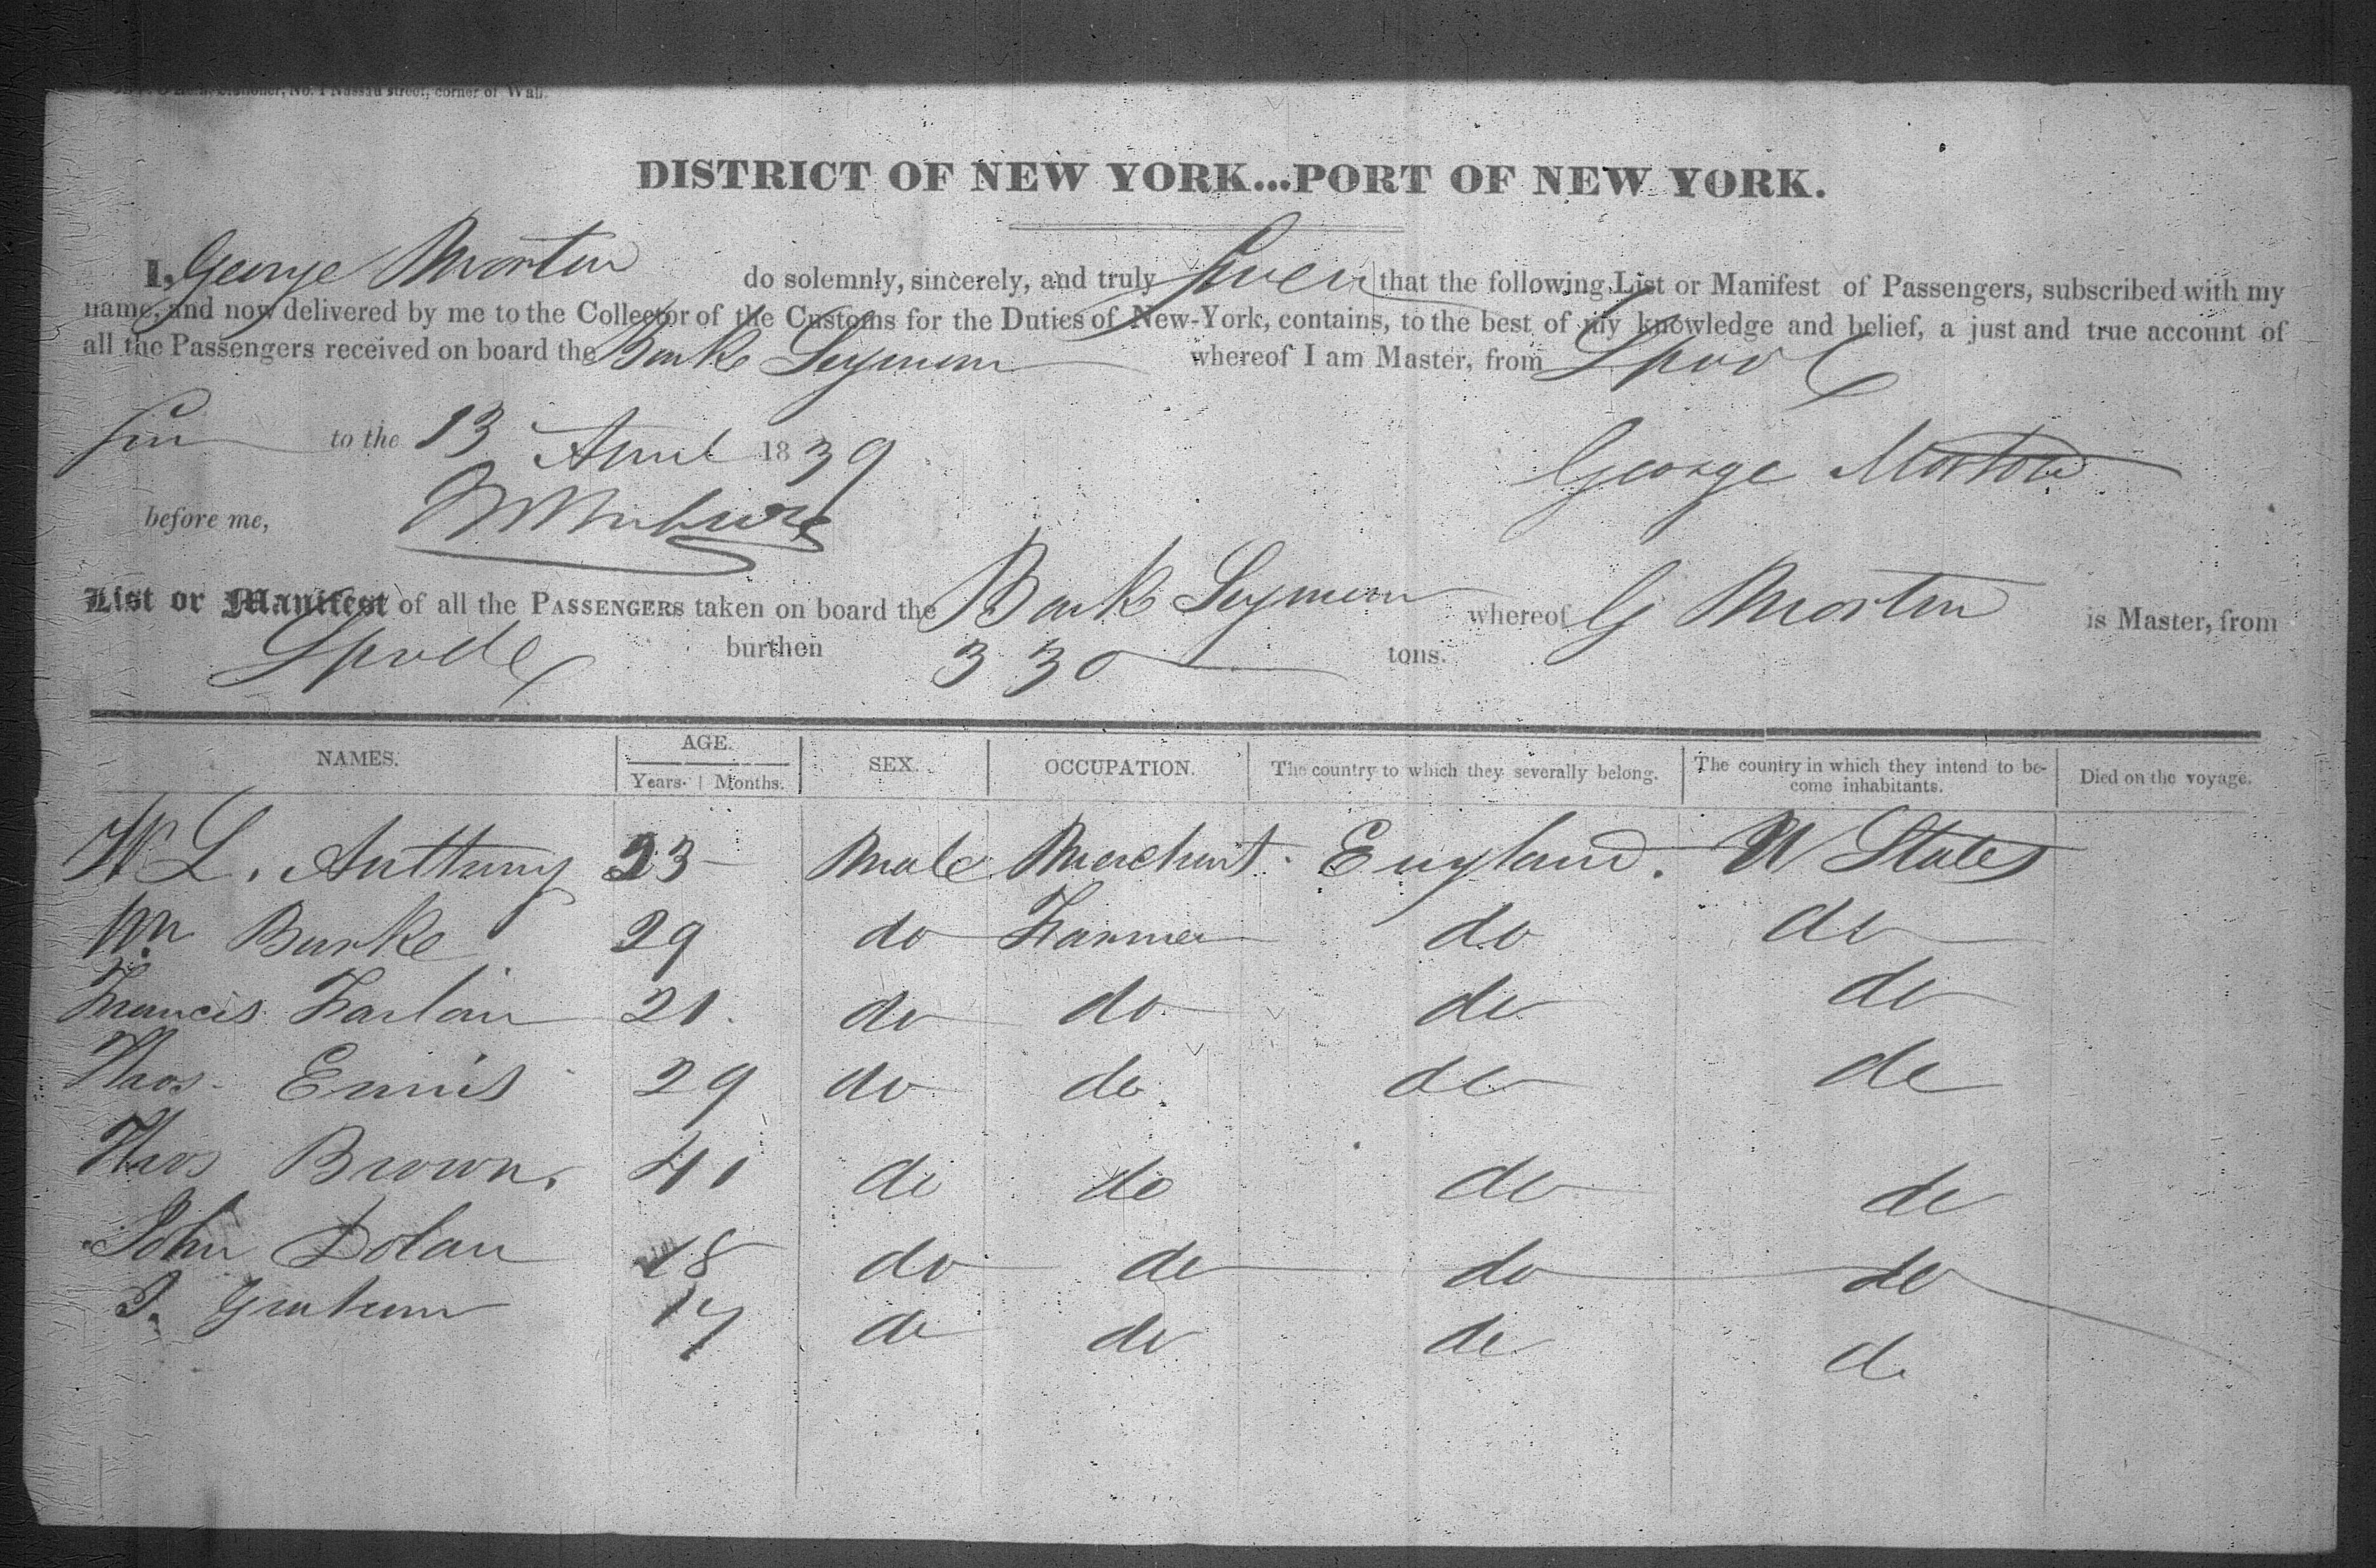 Stationer, No. 1 Nassau street, corner of Wall.
DISTRICT OF NEW YORK...PORT OF NEW YORK.
I, George Morton do solemnly, sincerely, and truly swear that the following List or Manifest of Passengers, subscribed with my
name, and now delivered by me to the Collector of the Customs for the Duties of New-York, contains, to the best of my knowledge and belief, a just and true account of
all the Passengers received on board the Barke whereof I am Master, from Lpool
to the 13 April 1839 George Morton
before me,
List or Manifest of all the PASSENGERS taken on board the Bark whereof G Morton is Master, from
burthen 330 tons.
NAMES. AGE. SEX. OCCUPATION. The country to which they severally belong. The country in which they intend to be- Died on the voyage.
Years. Months. come inhabitants.
W L. Anthony 23 Male Merchant. England. U States
Wm Burke 29 do Farmer do do
Francis Farlan 21. do do do do
Thos. Ennis 29 do do do do
Thos Brown. 41 do do do do
John Dolan 18 do do do do
J. Graham 17 do do do d